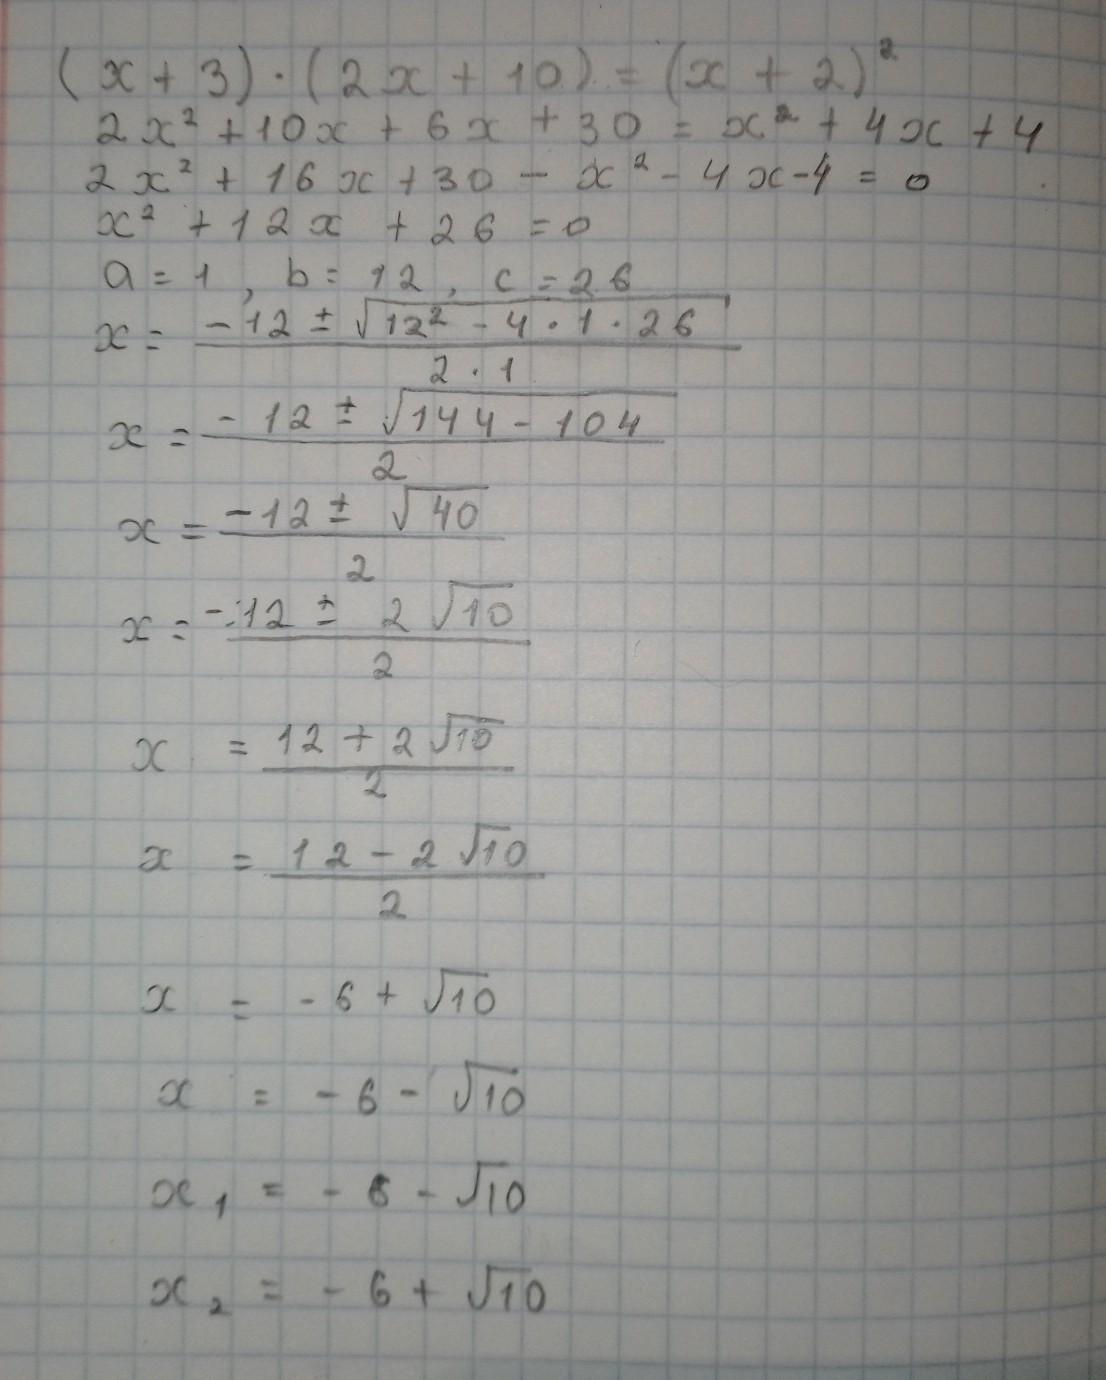 (x + 3) · (2x + 10) = (x + 2)²
2x² + 10x + 6x + 30 = x² + 4x + 4
2x² + 16x + 30 - x² - 4x - 4 = 0
x² + 12x + 26 = 0
a = 1, b = 12, c = 26
x = (-12 ± √(12² - 4 · 1 · 26)) / (2 · 1)
x = (-12 ± √(144 - 104)) / 2
x = (-12 ± √40) / 2
x = (-12 ± 2√10) / 2
x = (12 + 2√10) / 2
x = (12 - 2√10) / 2
x = -6 + √10
x = -6 - √10
x₁ = -6 - √10
x₂ = -6 + √10